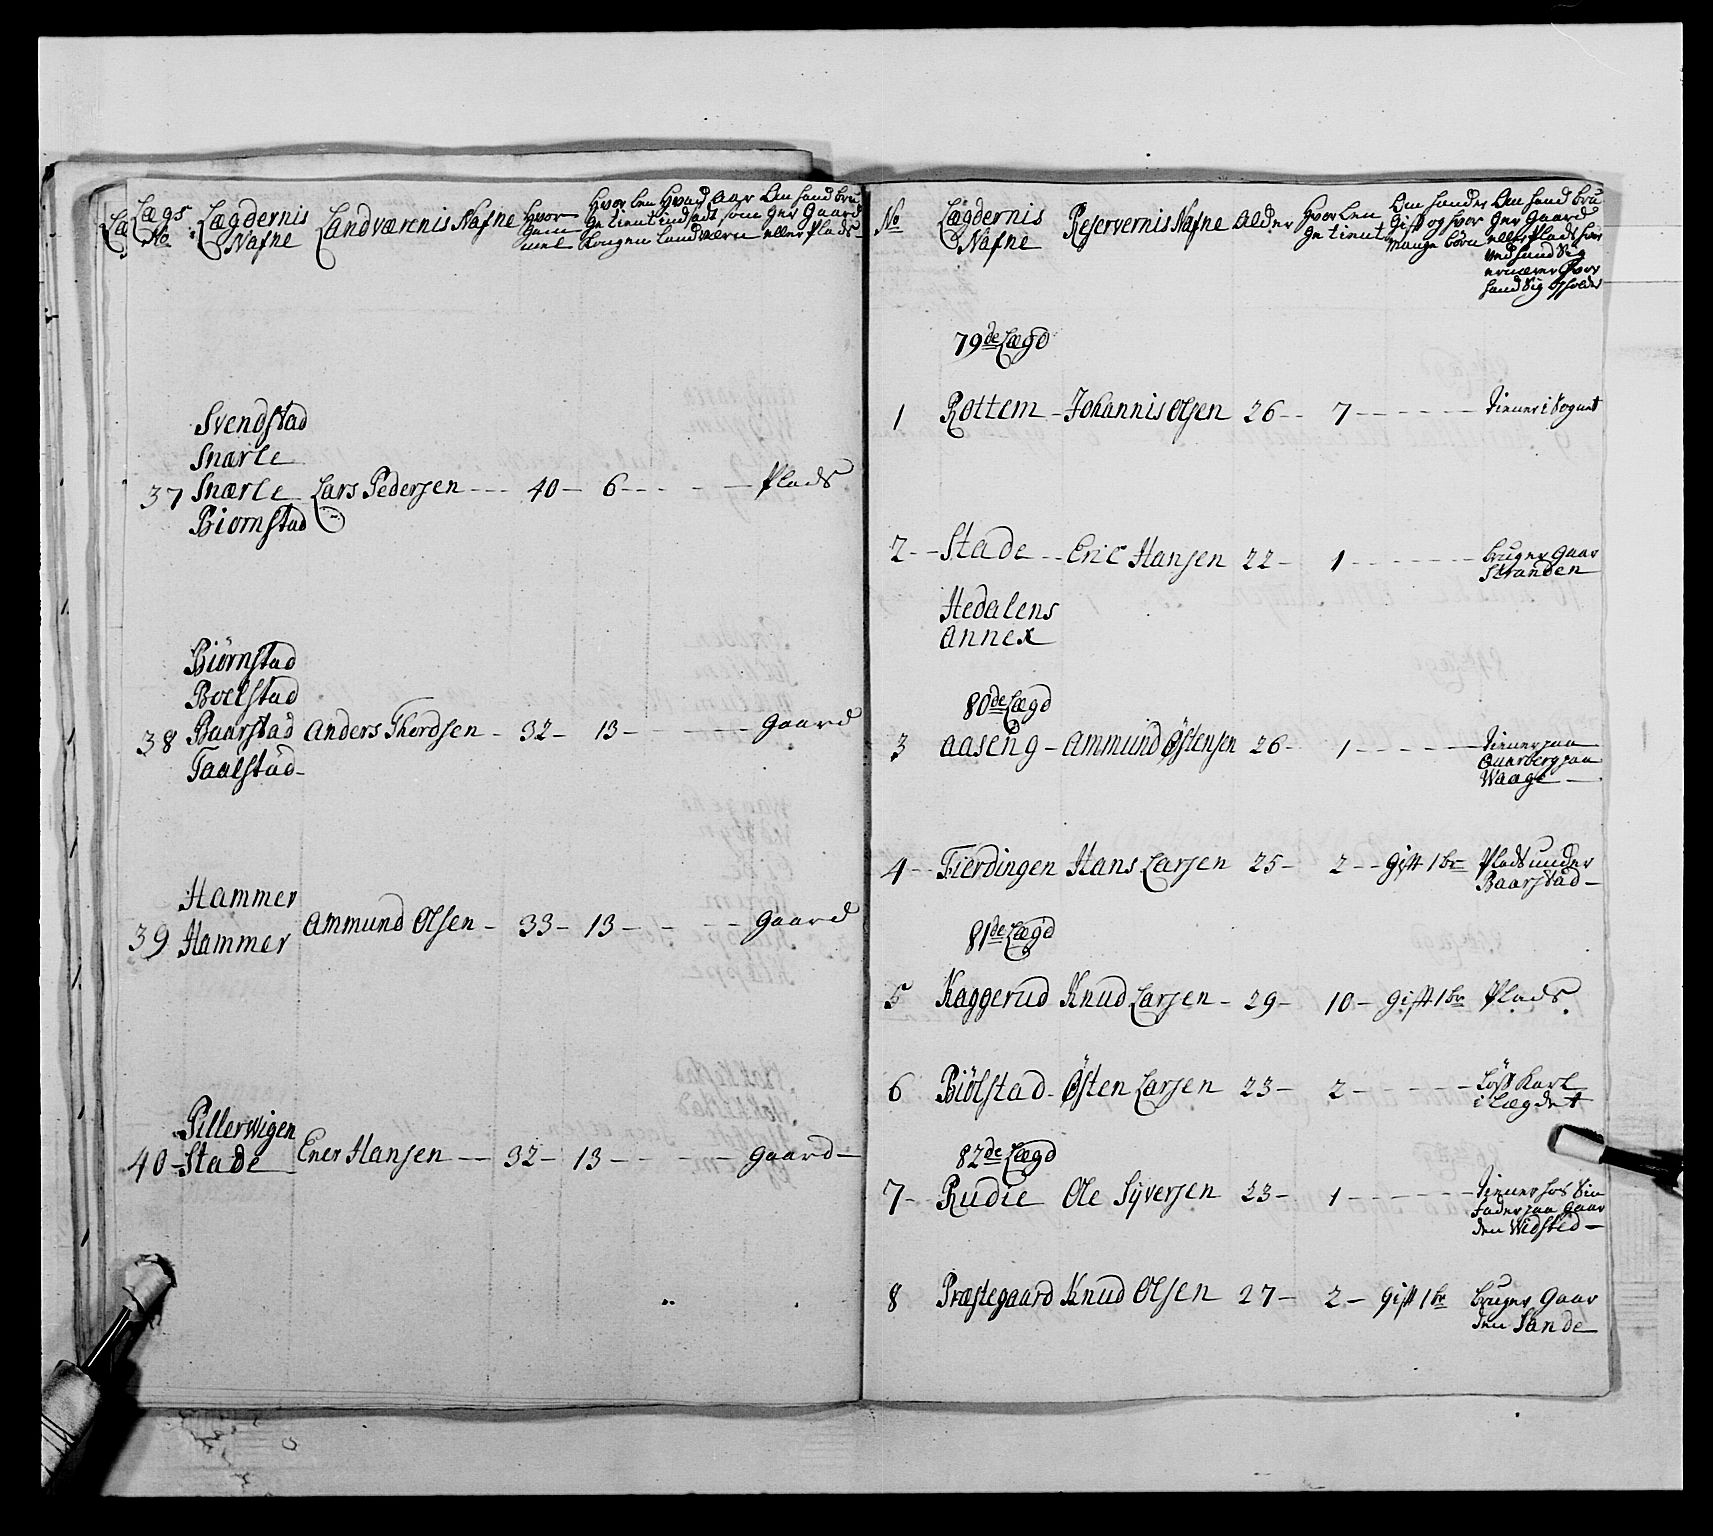 Lægs No
Lægdernis Nafne
Landværenis Nafne
Hvor gam mel
Hvor len ge tient Kongen
Hvad Aar indsadt som Landværn
Om hand bru ger Gaard eller Plads
Svendstad
Snærle
37 Snærle Lars Pedersen - 40 - 6 - Plads
Biornstad
Biörnstad
Boelstad
38 Baarstad Anders Thordsen - 32 - 13 - Gaard
Taalstad
Hammer
39 Hammer Ammund Olsen - 33 - 13 - Gaard
Pillerwigen
40 - Stade Ener Hansen - 32 - 13 - Gaard
No
Lægdernis Nafne
Reservernis Nafne
Alder
Hvor len ge tient
Om hand er Gift og hvor mange börn
Om hand bru ger Gaard eller Plads
ved hand Sig
ernærer Hvor
hand Sig opholder
79de Lægd
1 Rottem - Johannis Olsen 26 - 7 - tiener i Sognet
2 - Stade - Eric Hansen 22 - 1 - bruger Gaar
Stranden
Hedalens
Annex
80de Lægd
3 Aaseng - Ammund Østensen 26 - 1 - tiener paa
Waage
4 - Fierdingen Hans Larsen 25 - 2 - Gift 1 br Plads under
Baarstad
81de Lægd
5 Kaggerud Knud Larsen - 29 - 10 - Gift 1 br Plads
6 Biölstad - Østen Larsen 23 - 2 - Löss Karl
i Lægdet
82de Lægd
7 - Rudie Ole Syversen 23 - 1 - tiener hos Sin
Fader paa Gaar
den Widsted
8 Præstegaard Knud Olsen 27 - 2 - Gift 1 br bruger Gaar
den Sande